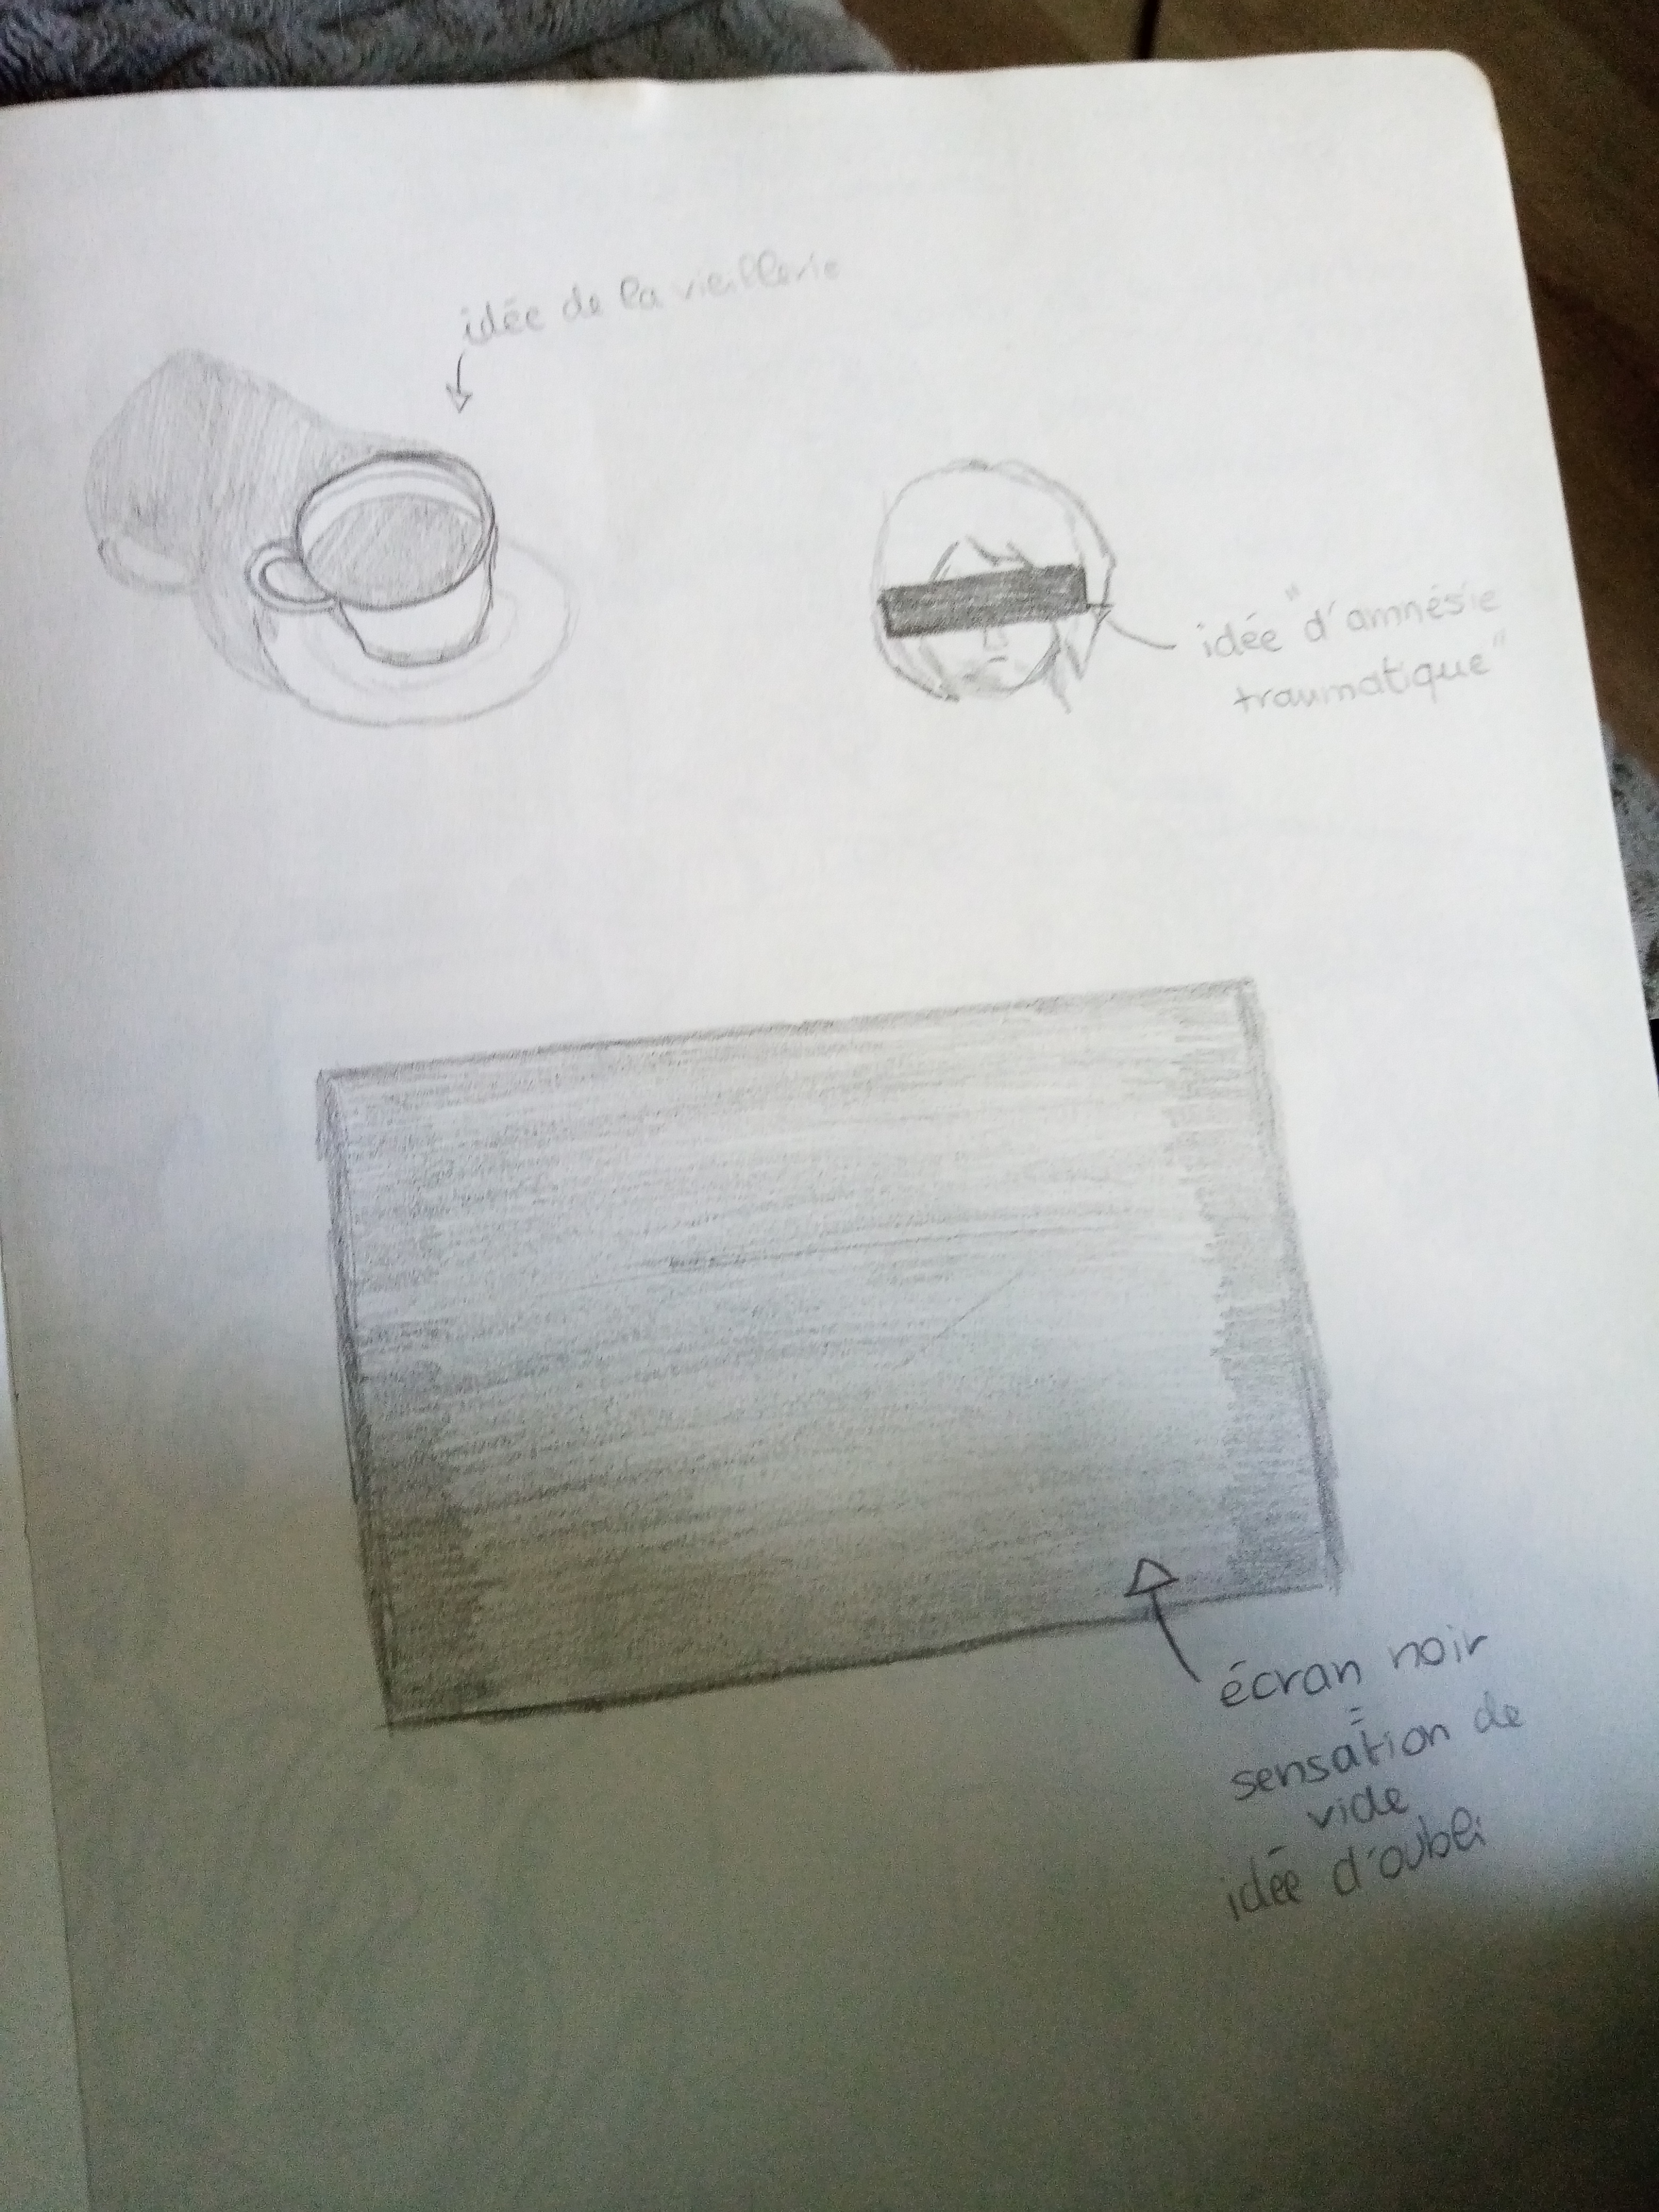 idée de la vieillerie
idée "d'amnésie
traumatique"
écran noir
=
sensation de
vide
idée d'oubli